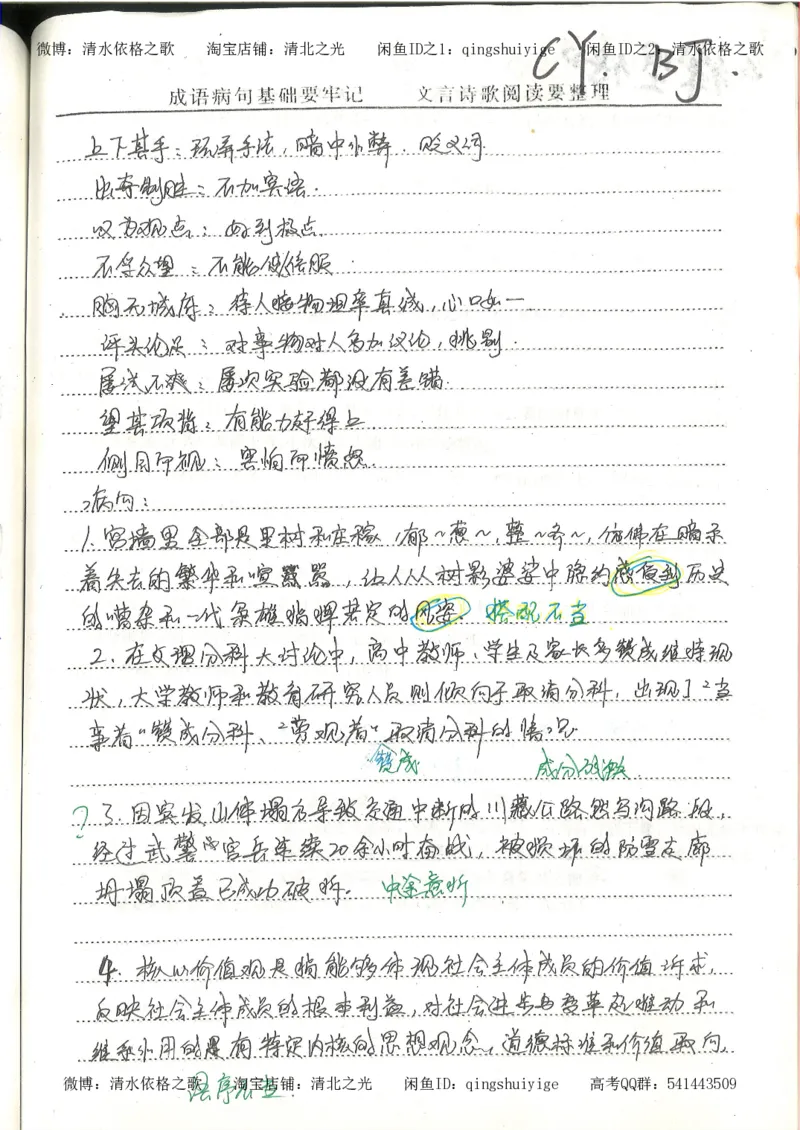 微博：清水依格之歌 淘宝店铺：清北之光 闲鱼ID之1：qingshuiyige 闲鱼ID之2：清水依格之歌
CY. BJ.
成语病句基础要牢记 文言诗歌阅读要整理
上下其手：玩弄手法，暗中作弊．贬义词
出奇制胜：不加宾语．
叹为观止：好到极点
不孚众望：不能使信服
胸无城府：待人接物坦率真诚，心口如一．
评头论足：对事物对人多加议论，挑剔．
屡试不爽：屡次实验都没有差错．
望其项背：有能力赶得上．
侧目而视：害怕而愤怒．
病句：
1. 宫墙里全部是果树和庄稼，郁~葱~，整~齐~，仿佛在暗示
着失去的繁华和喧嚣，让人从树影婆娑中隐约感受到历史
的嘈杂和一代枭雄指挥若定的风姿．搭配不当
2. 在文理分科大讨论中，高中教师、学生及家长多赞成维持现
状，大学教师和教育研究人员则倾向于取消分科，出现了"当
事者"赞成分科、"旁观者"取消分科的情况
赞成 成分残缺
? 3. 因突发山体塌方导致交通中断的川藏公路然乌沟路段，
经过武警官兵连续20余小时奋战，被损坏的防雪走廊
坍塌顶盖已成功破拆。中途易辙
4. 核心价值观是指能够体现社会主体成员的价值诉求，
反映社会主体成员的根本利益，对社会进步与变革起推动和
维系作用的具有特定内核的思想观念、道德标准和价值取向，
语序不当．
微博：清水依格之歌 淘宝店铺：清北之光 闲鱼ID：qingshuiyige 高考QQ群：541443509